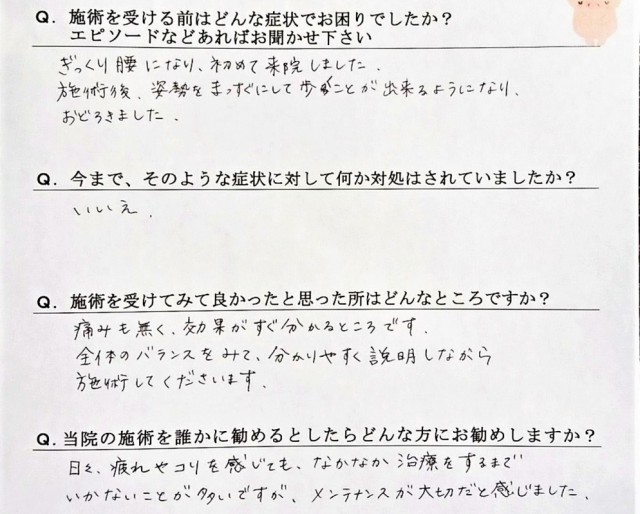 Q. 施術を受ける前はどんな症状でお困りでしたか？
エピソードなどあればお聞かせ下さい
ぎっくり腰になり、初めて来院しました.
施術後、姿勢をまっすぐにして歩ることが出来るようになり、
おどろきました.
Q. 今まで、そのような症状に対して何か対処はされていましたか？
いいえ.
Q. 施術を受けてみて良かったと思った所はどんなところですか？
痛みも無く、効果がすぐ分かるところです.
全体のバランスをみて、分かりやすく説明しながら
施術してくださいます.
Q. 当院の施術を誰かに勧めるとしたらどんな方にお勧めしますか？
日々、疲れやコリを感じても、なかなか治療をするまで
いかないことが多いですが、メンテナンスが大切だと感じました.